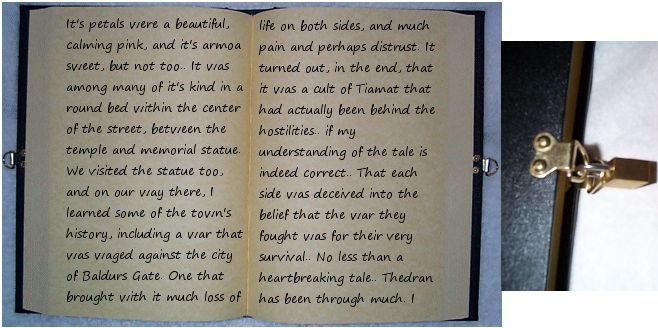 It's petals were a beautiful,
calming pink, and it's armoa
sweet, but not too.. It was
among many of it's kind in a
round bed within the center
of the street, between the
temple and memorial statue.
We visited the statue too,
and on our way there, I
learned some of the town's
history, including a war that
was waged against the city
of Baldurs Gate. One that
brought with it much loss of
life on both sides, and much
pain and perhaps distrust. It
turned out, in the end, that
it was a cult of Tiamat that
had actually been behind the
hostilities.. if my
understanding of the tale is
indeed correct.. That each
side was deceived into the
belief that the war they
fought was for their very
survival.. No less than a
heartbreaking tale.. Thedran
has been through much. I